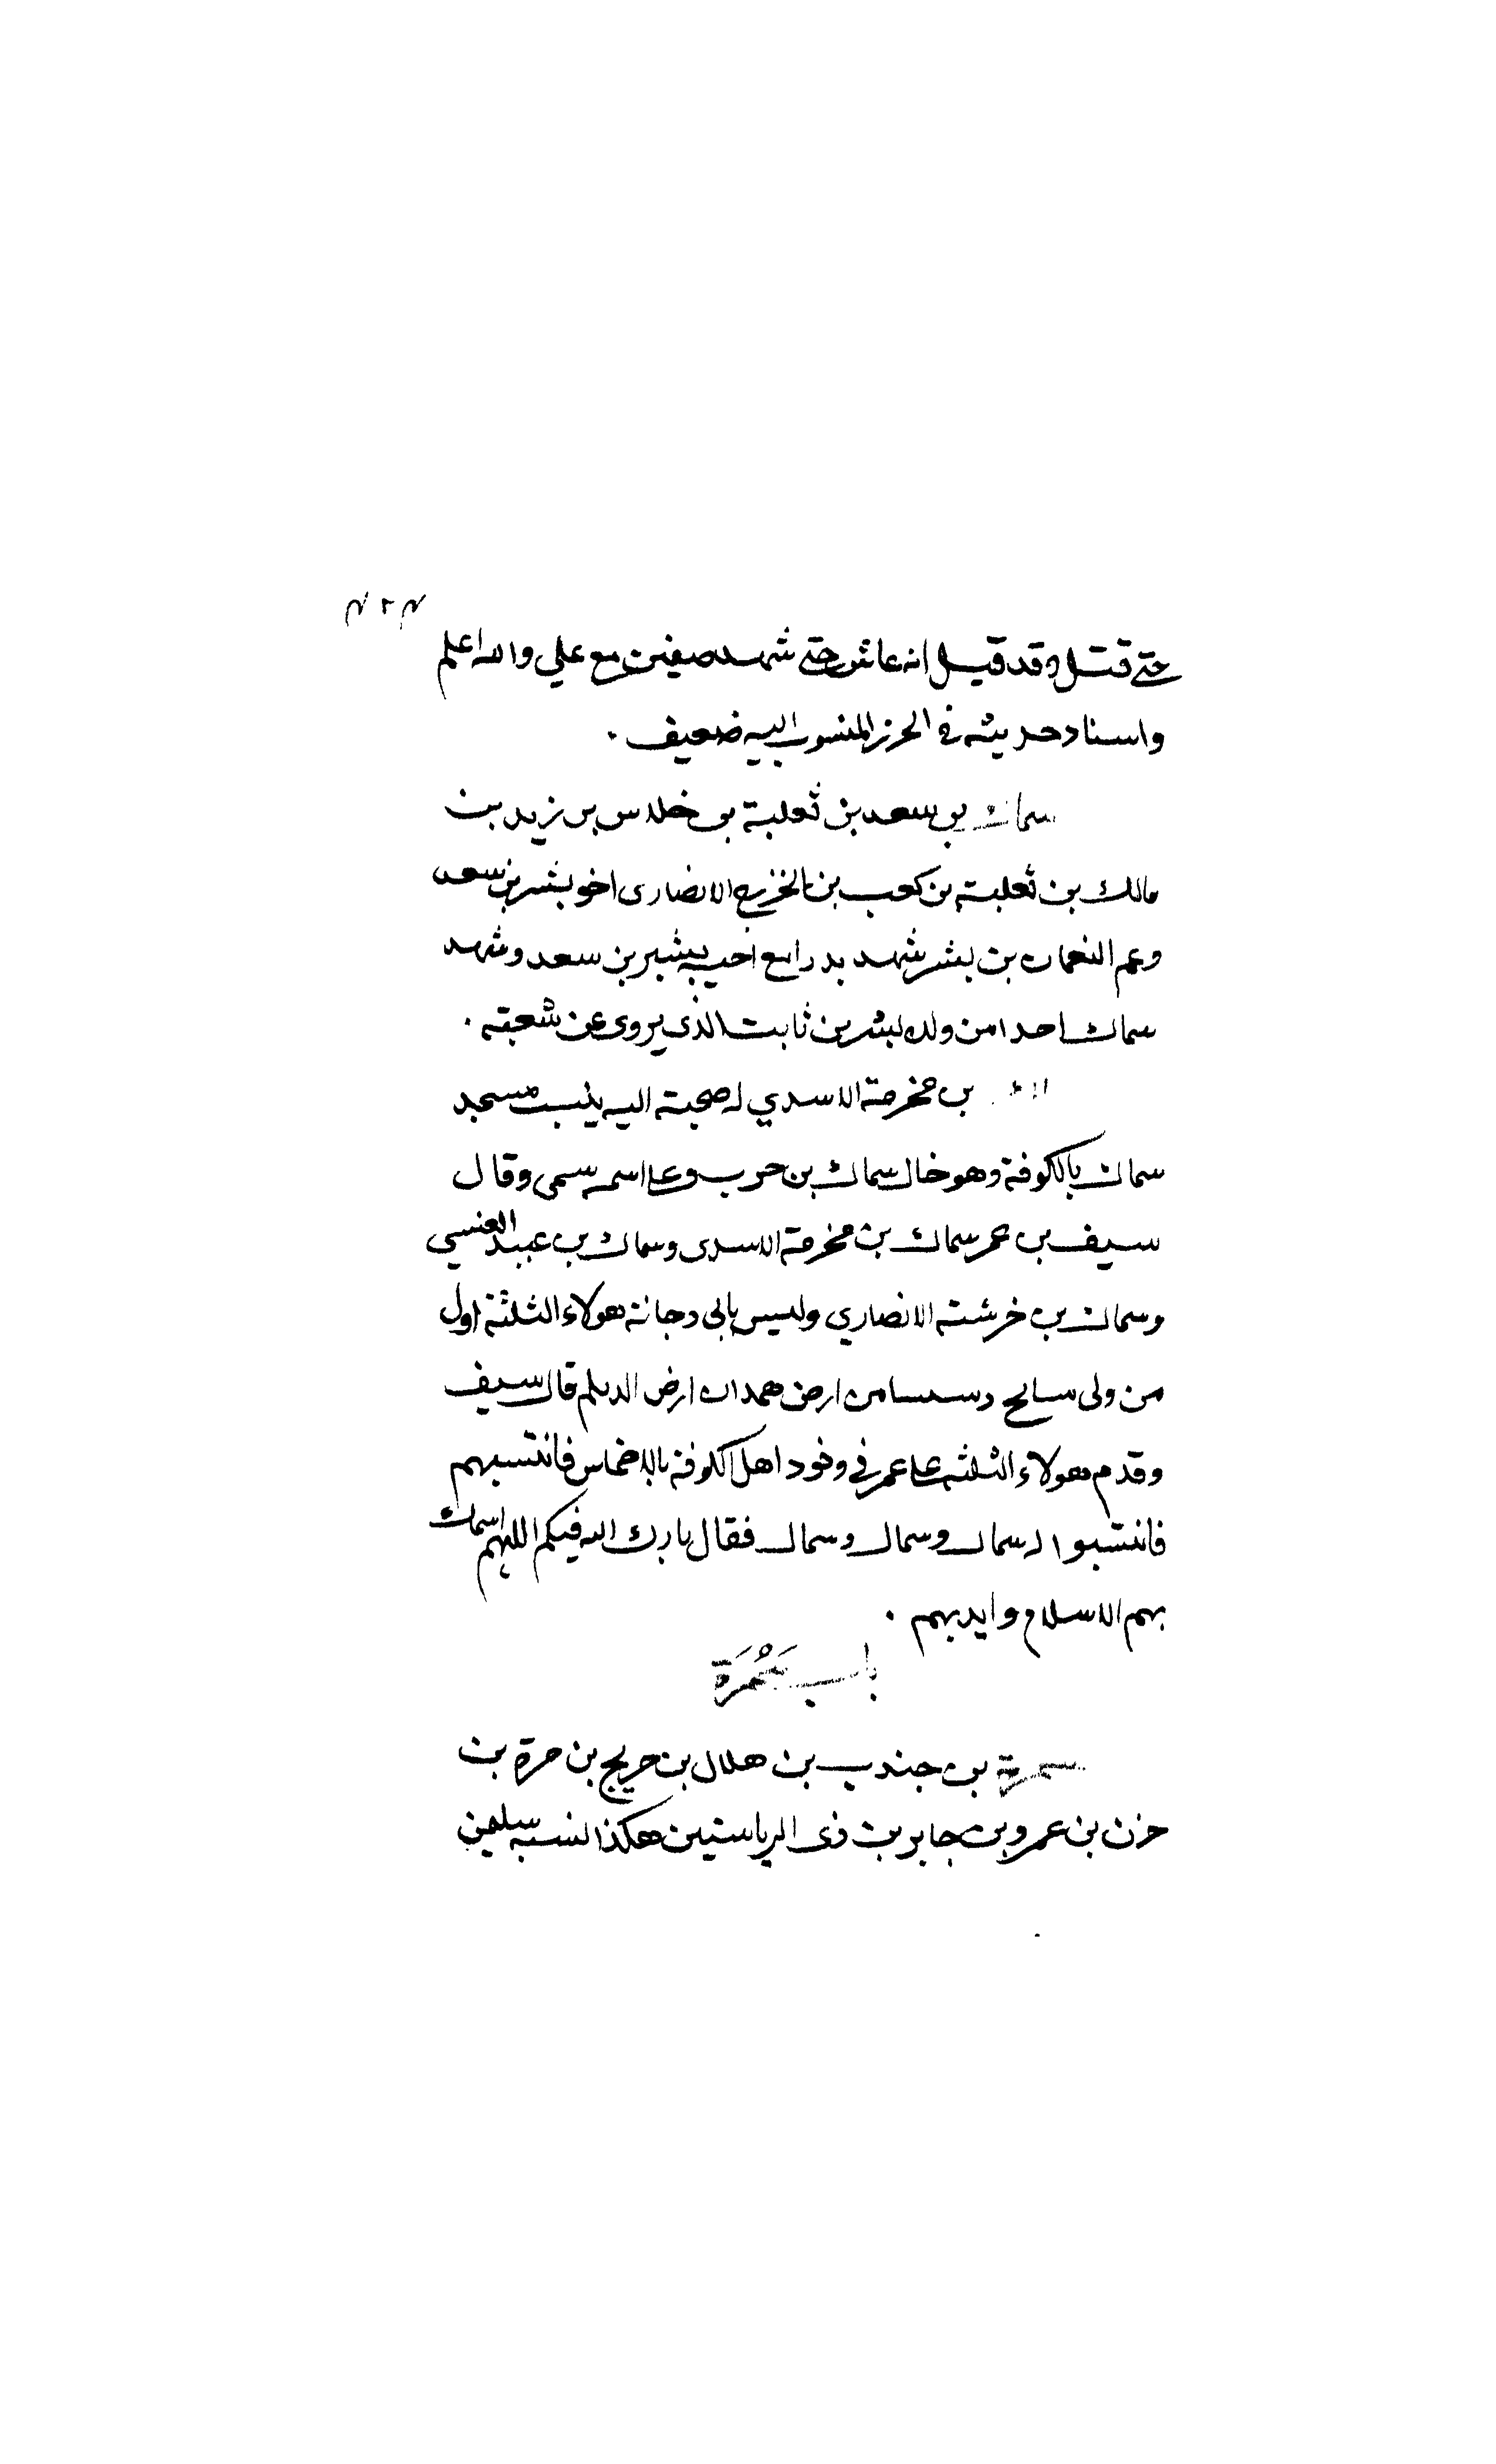 حتى قتل وقد قيل انه عاش حتى شهد صفين مع علي والله اعلم
واسناد حديثه في الحرز المنسوب اليه ضعيف .
سماك بن سعد بن ثعلبة بن خلاس بن زيد بن
مالك بن ثعلبة بن كعب بن الخزرج الانصارى اخو بشير بن سعد
وعم النعمان بن بشير شهد بدرا مع اخيه بشير بن سعد وشهد
سماك احدا من ولده بشر بن ثابت الذى يروى عن شعبة .
بن مخرمة الاسدي له صحبة اليه ينسب مسجد
سماك بالكوفة وهو خال سماك بن حرب وعلى اسمه سمى وقال
سيف بن عمر سماك بن مخرمة الاسدى وسماك بن عبيد العنسي
وسماك بن خرشة الانصاري وليس بابى دجانة هولاء الثلثة اول
من ولى مسالح من ارض همدان ارض الديلم قال سيف
وقدم هولاء الثلثة على عمر في وفود اهل الكوفة بالاخماس فانتسبهم
فانتسبوا له سماك وسماك وسماك فقال بارك الله فيكم اللهم اسمك
بهم الاسلام وايد بهم .
باب سَمُرَة
سمرة بن جندب بن هلال بن حريج بن مرة بن
حزن بن عمرو بن جابر بن ذى الرياستين هكذا نسبه سليمن